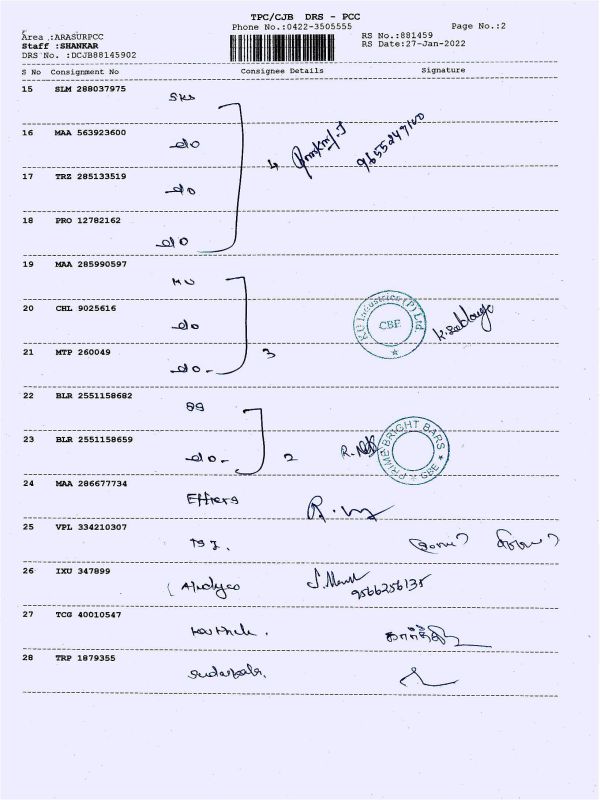 TPC/CJB DRS - PCC
Phone No.:0422-3505555 Page No.:2
Area :ARASURPCC RS No.:881459
Staff :SHANKAR RS Date:27-Jan-2022
DRS No. :DCJB88145902
S No Consignment No Consignee Details Signature
15 SLM 288037975
SKS
16 MAA 563923600
do 4 9655247100
17 TRZ 285133519
do
18 PRO 12782162
do
19 MAA 285990597
MU
20 CHL 9025616
do K U Industries (P) Ltd. CBE
21 MTP 260049
do- 3
22 BLR 2551158682
23 BLR 2551158659
do- 2 PRIME BRIGHT BARS CBE
24 MAA 286677734
Effiera
25 VPL 334210307
26 IXU 347899
9566256135
27 TCG 40010547
Karthik. கார்த்தி
28 TRP 1879355